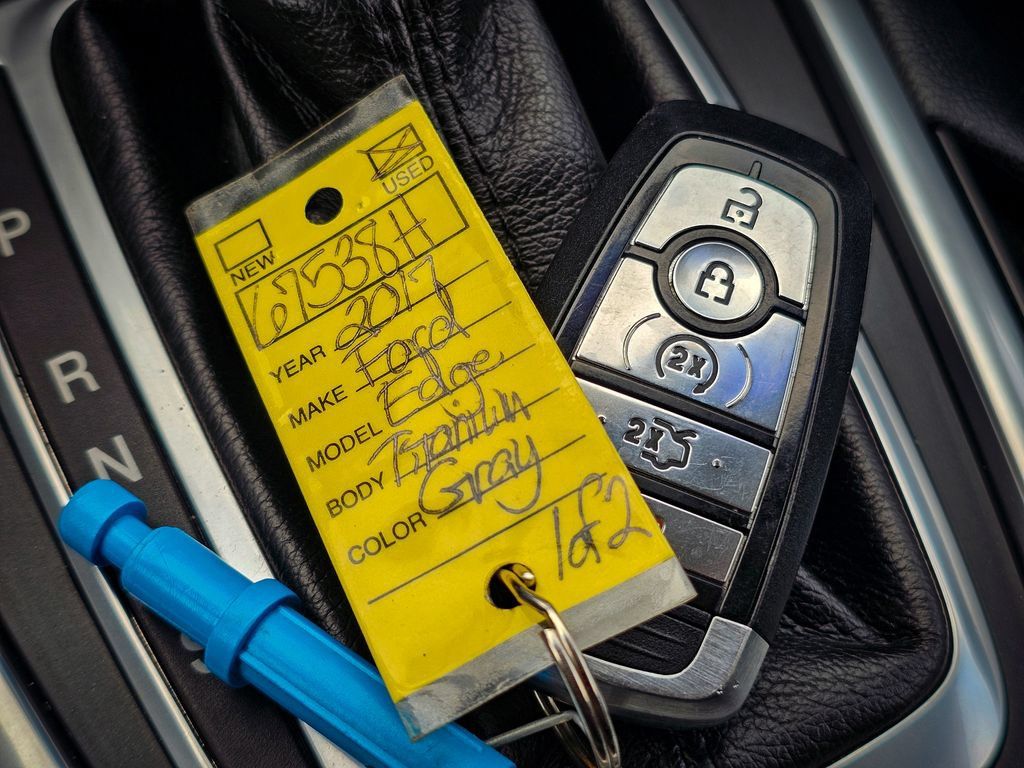 USED
NEW
67538H
YEAR 2017
MAKE Ford
MODEL Edge
BODY Titanium
COLOR Gray
1 of 2
2X
2X
P
R
N
S